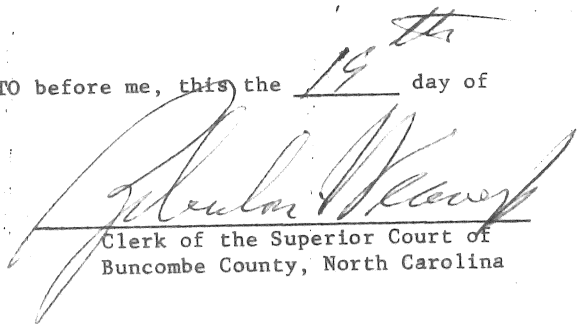 TO before me, this the 19th day of
Zebulon Weaver
Clerk of the Superior Court of
Buncombe County, North Carolina